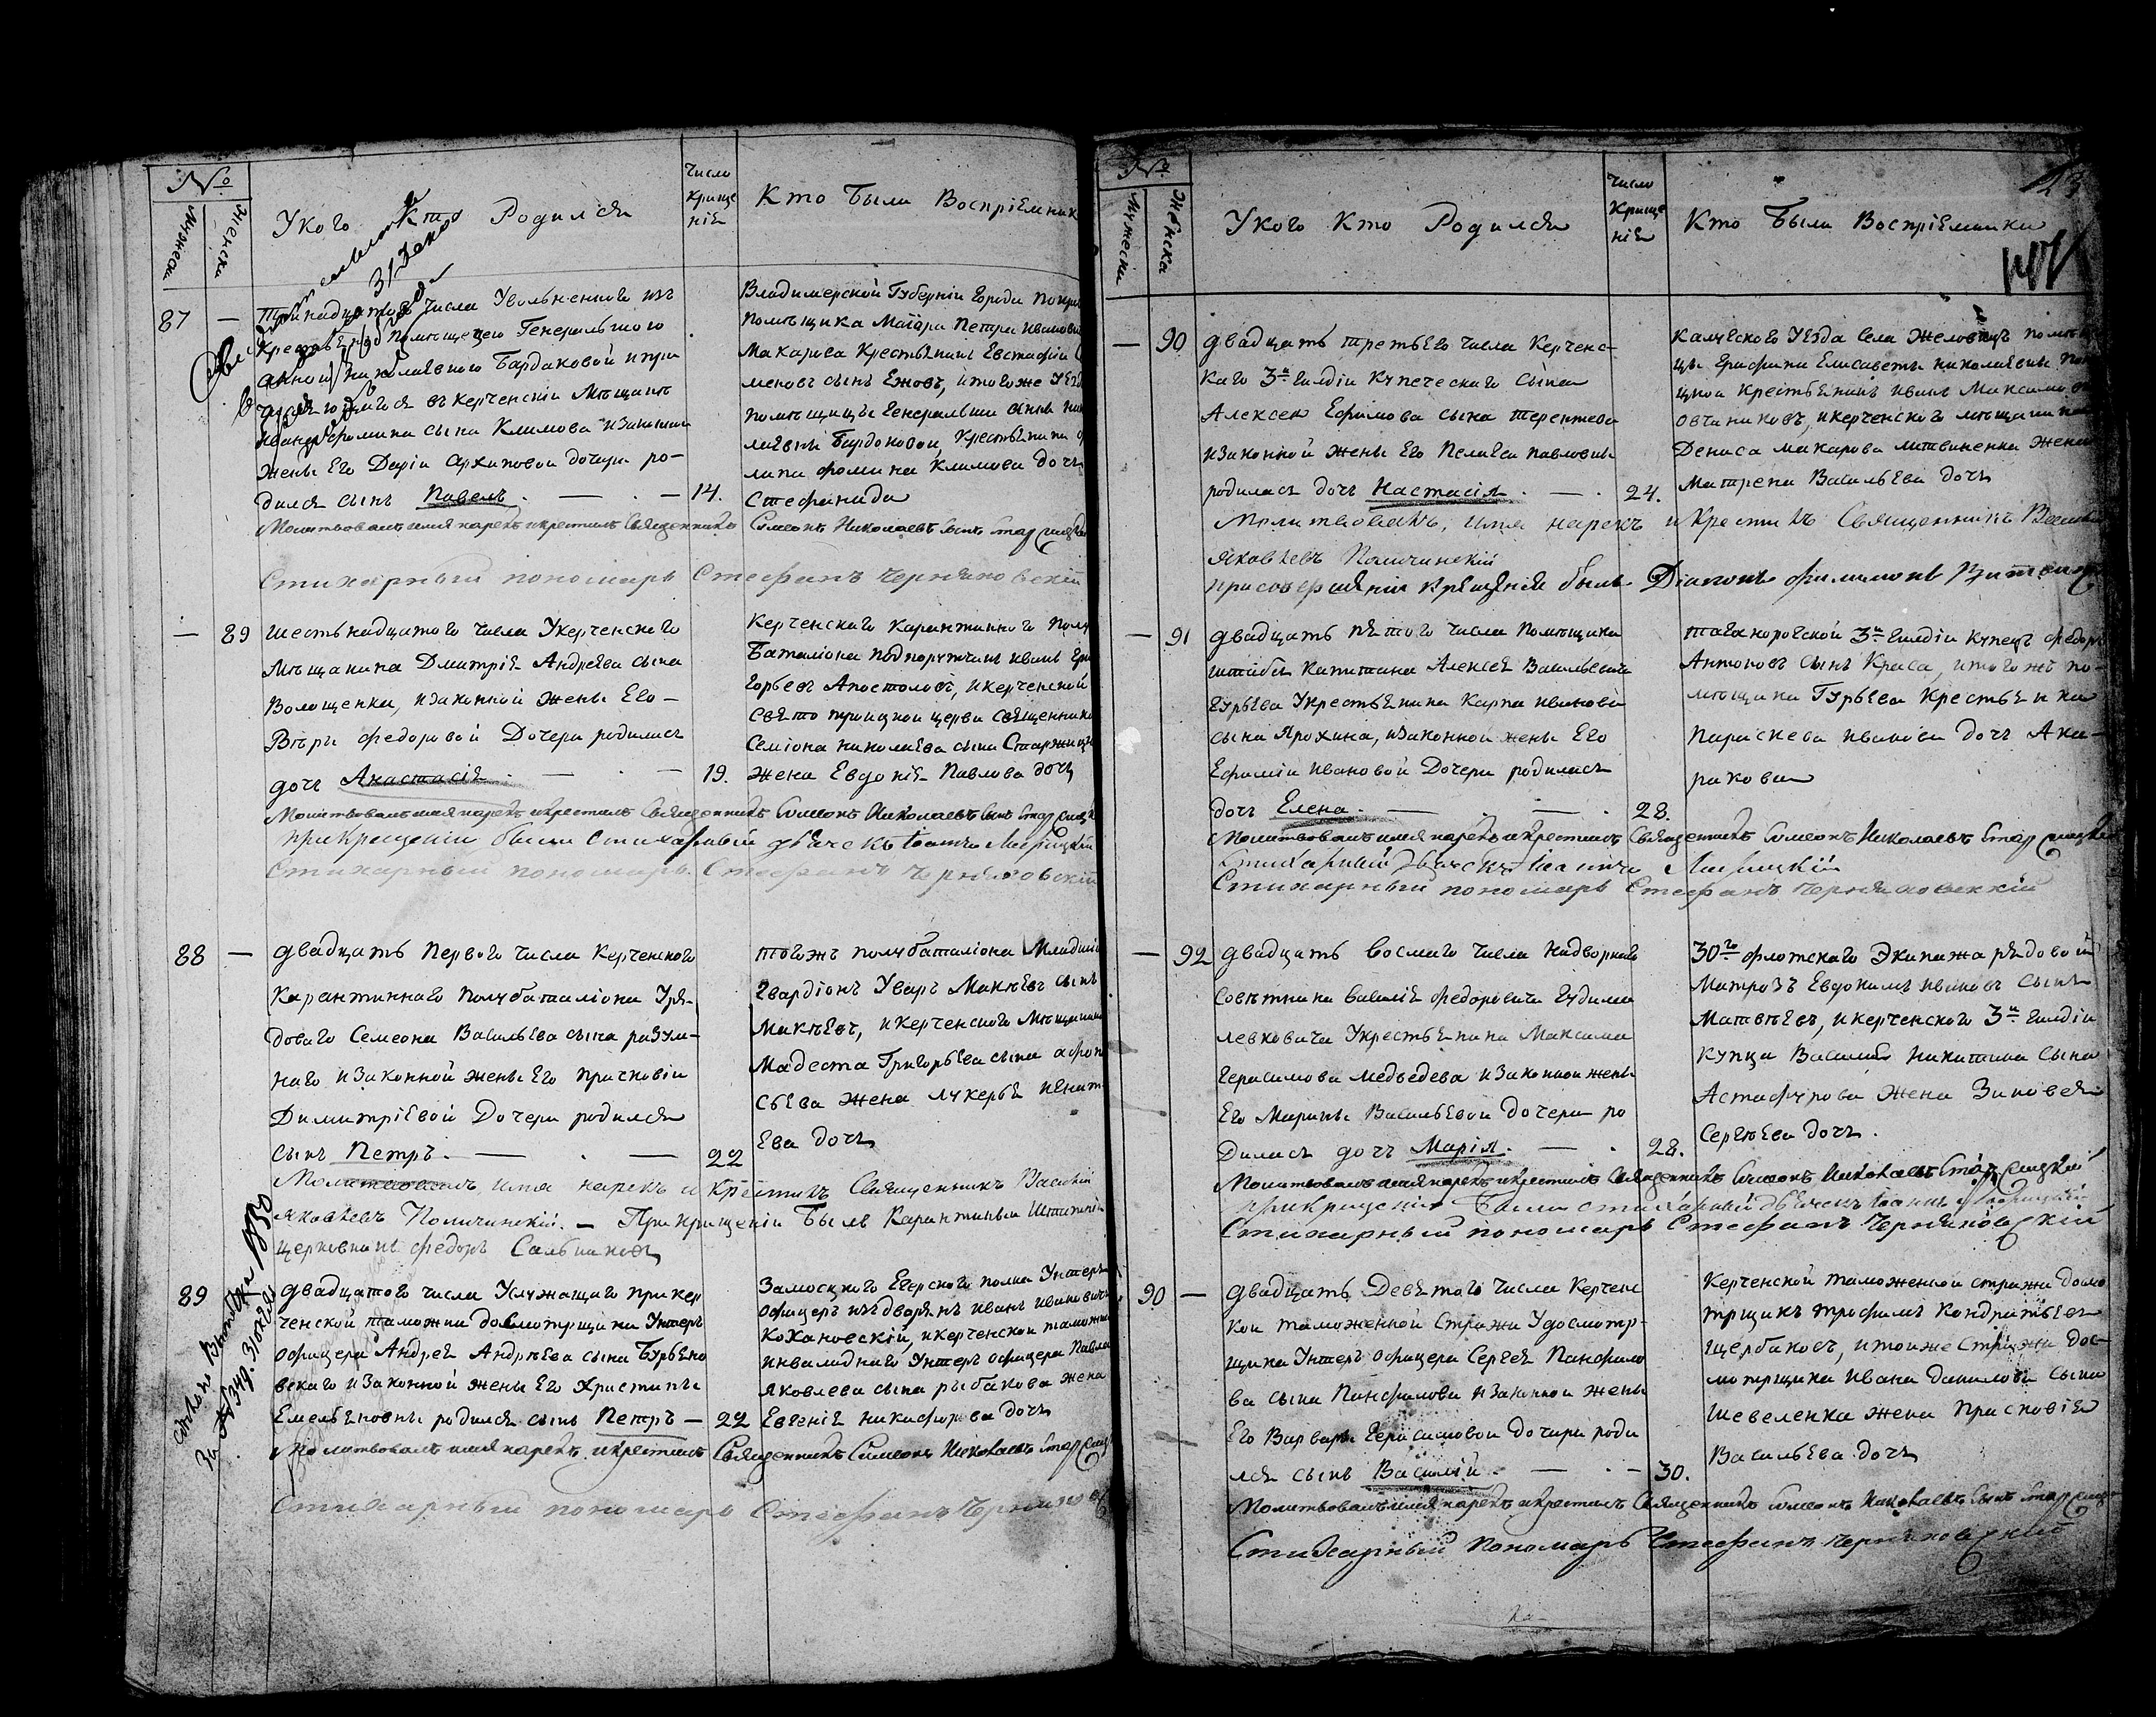 №
Мужески
Женски
У кого Кто Родился
Число
Креще
нiя
Кто Были Воспрiемник
87 —
тринадцатого числа Увольненного изъ
Крестьянъ Помещицею Генеральшою
Анною Николаевною Бардаковой и при
въ Керченскiи Мещане
Ивана Фомина сына Климова и законной
жены Его Дарiи Архиповой дочери ро-
дился сынъ Павелъ. — . — 14.
Владимерской Губернiи Города Покро
помещика Маiора Петра Иванови
Макарова Крестьянинъ Евстафiй
меновъ сынъ Ежовъ, и того же Уезд
помещицы Генеральши Анны Ни
лаевны Бардоковой, Крестьянина
липа Фомина Климова дочь
Стефанида
Молитвовалъ имя нарекъ и крестилъ Священникъ Симеонъ Николаевъ сынъ Старжицкiй
Стихарный пономарь Стефанъ Черняховскiй
— 89
шестьнадцатого числа У Керченского
Мещанина Дмитрiя Андреева сына
Волощенки, и законной жены Его —
Веры Федоровой Дочери родилась
дочь Анастасiя. — . — 19.
Керченского Карантинного Полу
Баталiона подпорутчикъ Иванъ Гри
горьевъ Апостоловъ, и Керченской
Свято троицкой церви Священника
Семiона Николаева сына Старжицк
жена Евдокiя Павлова дочь
Молитвовалъ имя нарекъ и крестилъ Священникъ Симеонъ Николаевъ сынъ Старжицкiй
при Крещенiи были Стихарный дьячекъ Iоаннъ
Стихарный пономарь Стефанъ Черняховскiй
88 —
двадцать Первого числа Керченского
Карантинного полубаталiона У ря-
дового Семеона Васильева сына разум-
наго и законной жены Его Прасковiи
Димитрiевой Дочери родился
сынъ Петръ. — . — 22
тогожъ полубаталiона Младшiй
Гвардiонъ Уваръ Макеевъ сынъ
Макеевъ, и Керченского Мещанина
Мадеста Григорьева сына Афон
сьева Жена Лукерья Игнат
ева дочь
Молитвовалъ, имя нарекъ и крестилъ Священникъ Василiй
Яковлевъ Поличинскiй. — При крещенiи Былъ Карантинный Штатный
церковникъ Федоръ Сальниковъ
89
двадцатого числа У служащаго при Кер
ченской таможни досмотрщика Унтеръ
офицера Андрея Андреева сына Бурьяно
вскаго и законной жены Его Христины
Емельяновны родился сынъ Петръ — 22
Замосцкого Егерского полка Унтеръ
офицеръ изъ дворянъ Иванъ Ивановичъ
Кохановскiй, и Керченской таможни
инвалиднаго Унтеръ офицера Павла
Яковлева сына рыбакова жена
Евгенiя Никифорова дочь
Молитвовалъ имя нарекъ и крестилъ Священникъ Симеонъ Николаевъ Старжицкiй
Стихарный пономарь Стефанъ Черняхов
№
Мужески
Женска
У кого Кто Родился
Число
Креще
нiя
Кто Были Воспрiемники
— 90
двадцать третьего числа Керченс-
каго 3й гилдiи Купеческаго сына
Алексея Ефимова сына терентева
и законной жены Его Пелагеи Павловны
родилась дочь Настасiя. — . 24.
Уезда села Желовицъ поме
цы Графини Елисаветы Николаевны
цкой Крестьянинъ Иванъ Максимовъ
овчиниковъ, и Керченского мещанина
Дениса Макарова Литвиненка Жена
Матрена Васильева дочь
Молитвовалъ, имя нарекъ и Крестилъ Священникъ Василiй
Яковлевъ Поличинскiй
при совершенiи крещенiя былъ Дiаконъ Филимонъ
— 91
двадцать пятого числа Помещика
штабсъ Капитана Алексея Васильевича
Гурьева У крестьянина Карпа Иванова
сына Ярохина, и законной жены Его
Ефимiи Ивановой Дочери родилась
дочь Елена. — — . 28.
таганрогской 3й гилдiи купецъ Федоръ
Антоновъ сынъ Краса, и тогожъ по-
мещика Гурьева Крестьянка
Параскева Иванова дочь Ана-
ракова
Молитвовалъ имя нарекъ и крестилъ Священникъ Симеонъ Николаевъ Старжицкiй
Стихарный дьячекъ Iоаннъ
Стихарный пономарь Стефанъ Черняховскiй
— 92
двадцать восмаго числа Надворнаго
Советника Василiя Федоровича Гудима
левковича У крестьянина Максима
Герасимова Медведева и законной жены
Его Марины Васильевой дочери ро
дилась дочь Марiя. — . 28.
30го флотскаго Экипажа рядовой
Матрозъ Евдокимъ Ивановъ сынъ
Матвеевъ, и Керченского 3й гилдiи
купца Василiя Никитина сына
Астафурова Жена Зиновея
Сергеева дочь.
Молитвовалъ имя нарекъ и крестилъ Священникъ Симеонъ Николаевъ Старжицкiй
при крещенiи Были стихарный дьячекъ Iоаннъ
Стихарный пономарь Стефанъ Черняховскiй
90 —
двадцать Девятого числа Керченс
кой таможенной Стражи У досмотр-
щика Унтеръ офицера Сергея Панфило
ва сына Панфилова и законной жены
Его Варвары Герасимовой дочери роди
лся сынъ Василiй. — . — 30.
Керченской таможенной стражи досмо
трщикъ трофимъ Кондратьевъ
Щербаковъ, и тойже Стражи дос-
мотрщика Ивана Данилова сына
Шевеленка жена Прасковiя
Васильева дочь
Молитвовалъ имя нарекъ и крестилъ Священникъ Симеонъ Николаевъ сынъ Старжицкiй
Стихарный Пономарь Стефанъ Черняховскiй